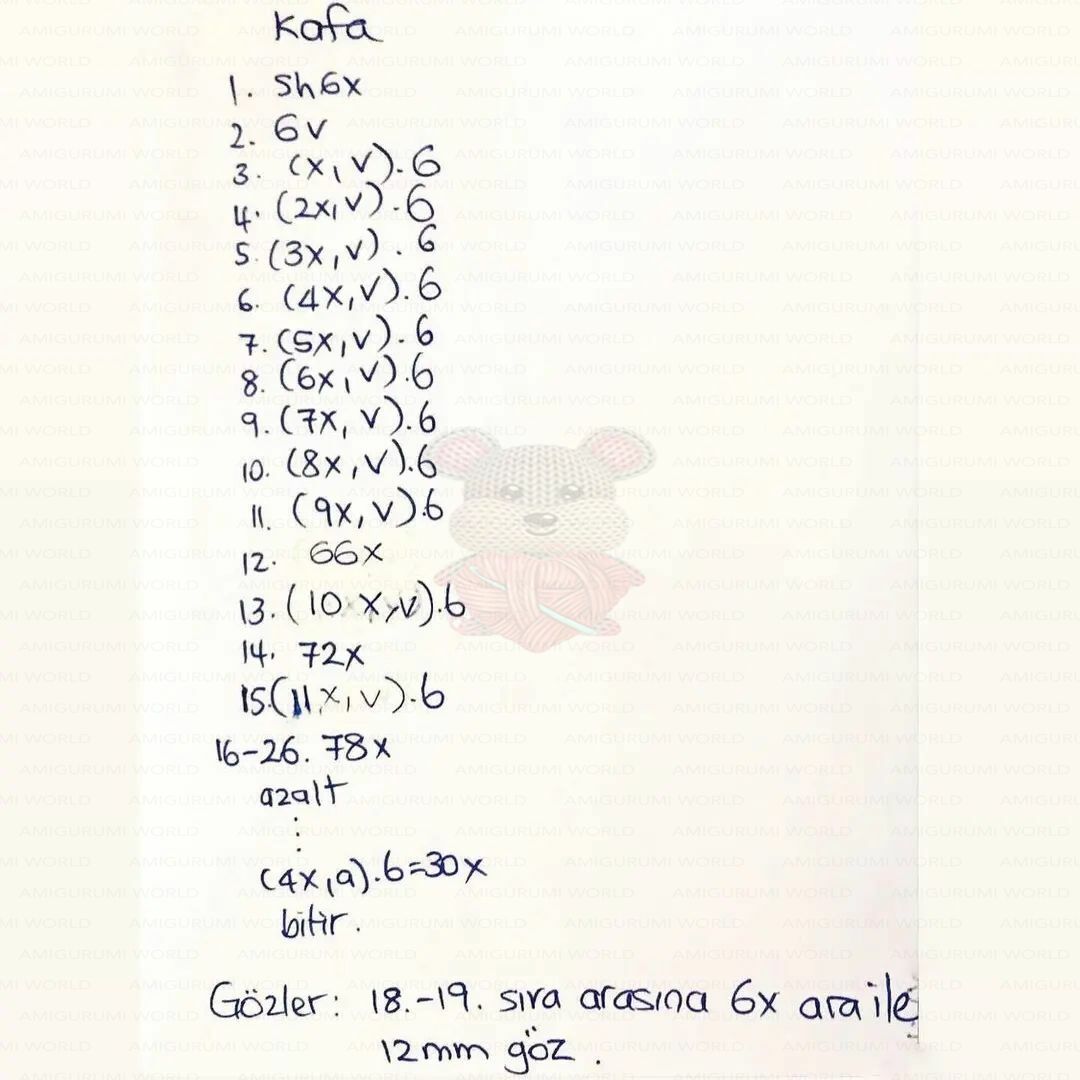 Kafa
1. Sh6x
2. 6v
3. (x, v).6
4. (2x, v).6
5. (3x, v).6
6. (4x, v).6
7. (5x, v).6
8. (6x, v).6
9. (7x, v).6
10. (8x, v).6
11. (9x, v).6
12. 66x
13. (10x, v).6
14. 72x
15. (11x, v).6
16-26. 78x
azalt
⋮
(4x, a).6=30x
bitir.
Gözler: 18.-19. sıra arasına 6x ara ile
12mm göz.
AMIGURUMI WORLD